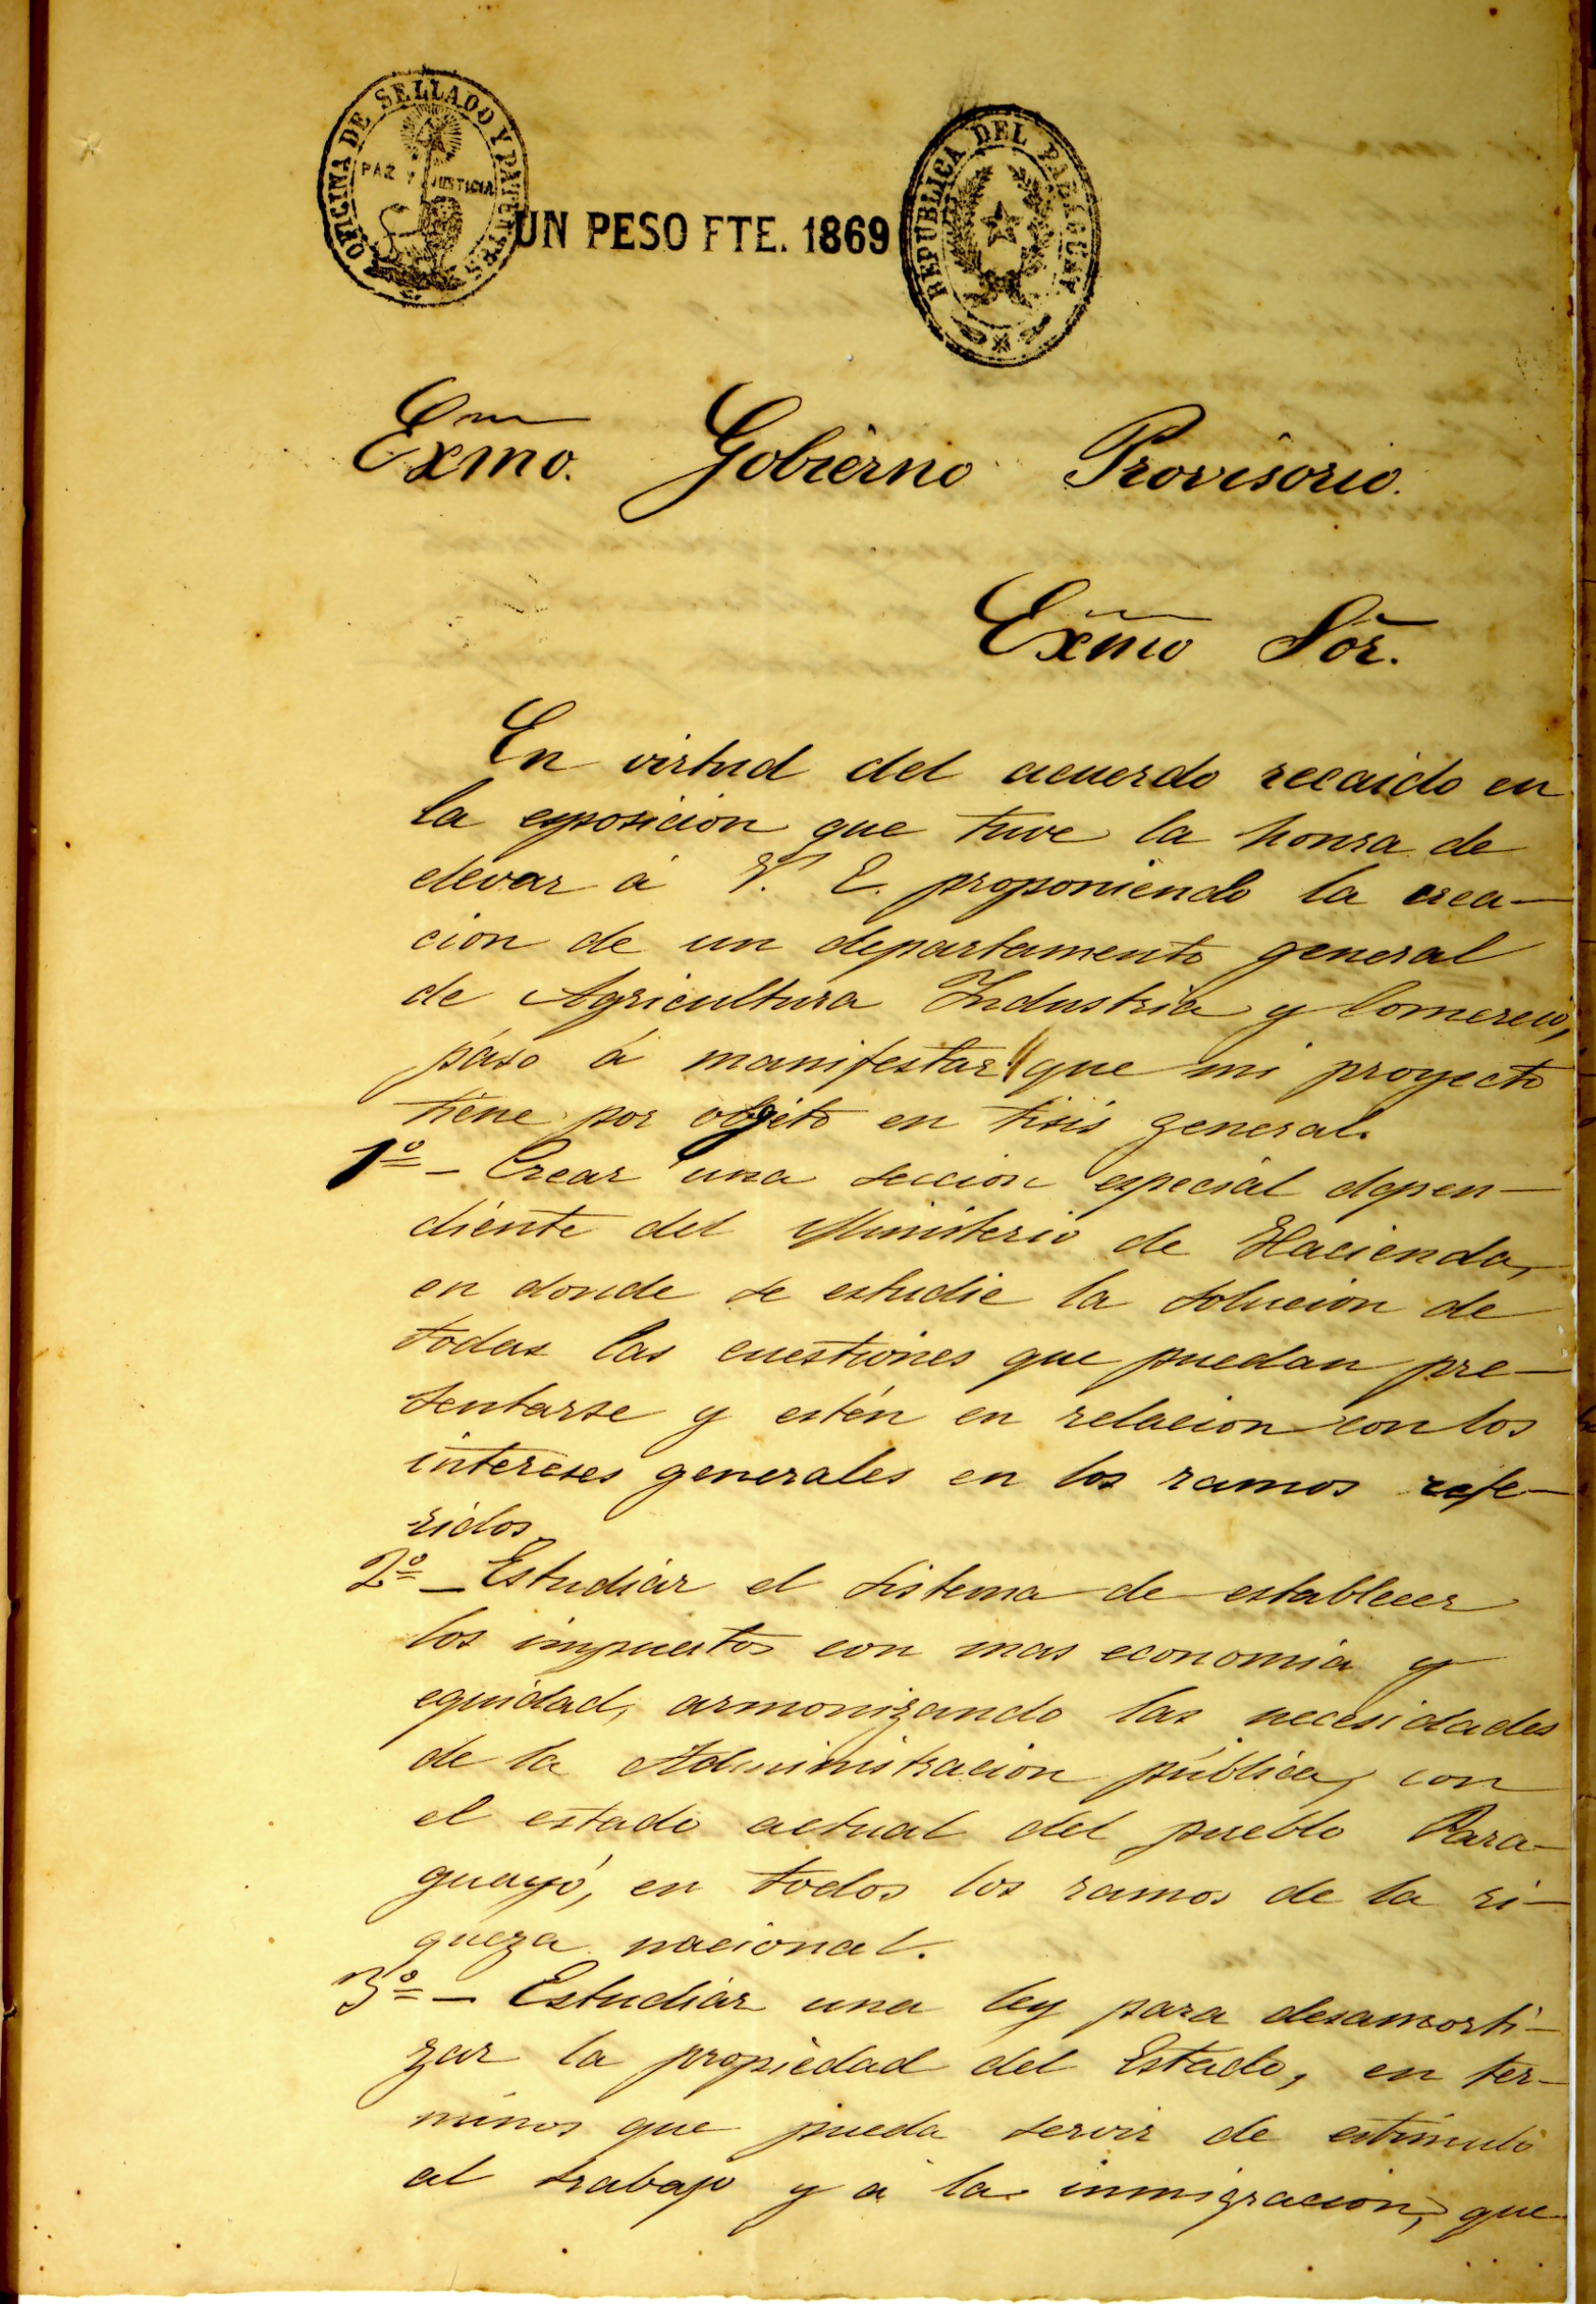 OFICINA DE SELLADO Y PATENTES
PAZ Y JUSTICIA
UN PESO FTE. 1869
REPUBLICA DEL PARAGUAY
Exmo. Gobierno Provisorio.
Exmo Sor.
En virtud del acuerdo recaido en
la esposicion que tuve la honra de
elevar á V. E. proponiendo la crea-
cion de un departamento general
de Agricultura Industria y Comercio,
paso á manifestar que mi proyecto
tiene por objeto en tisis general.
1º - Crear una seccion especial depen-
diente del Ministerio de Hacienda,
en donde se estudie la solucion de
todas las cuestiones que puedan pre-
sentarse y estén en relacion con los
intereses generales en los ramos refe-
ridos.
2º - Estudiar el sistema de establecer
los impuestos con mas economia y
equidad, armonizando las necesidades
de la Administracion pública, con
el estado actual del pueblo Para-
guayó, en todos los ramos de la ri-
queza nacional.
3º - Estudiar una ley para desamorti-
zar la propiedad del Estado, en ter-
minos que pueda servir de estimulo
al trabajo y á la inmigracion, que